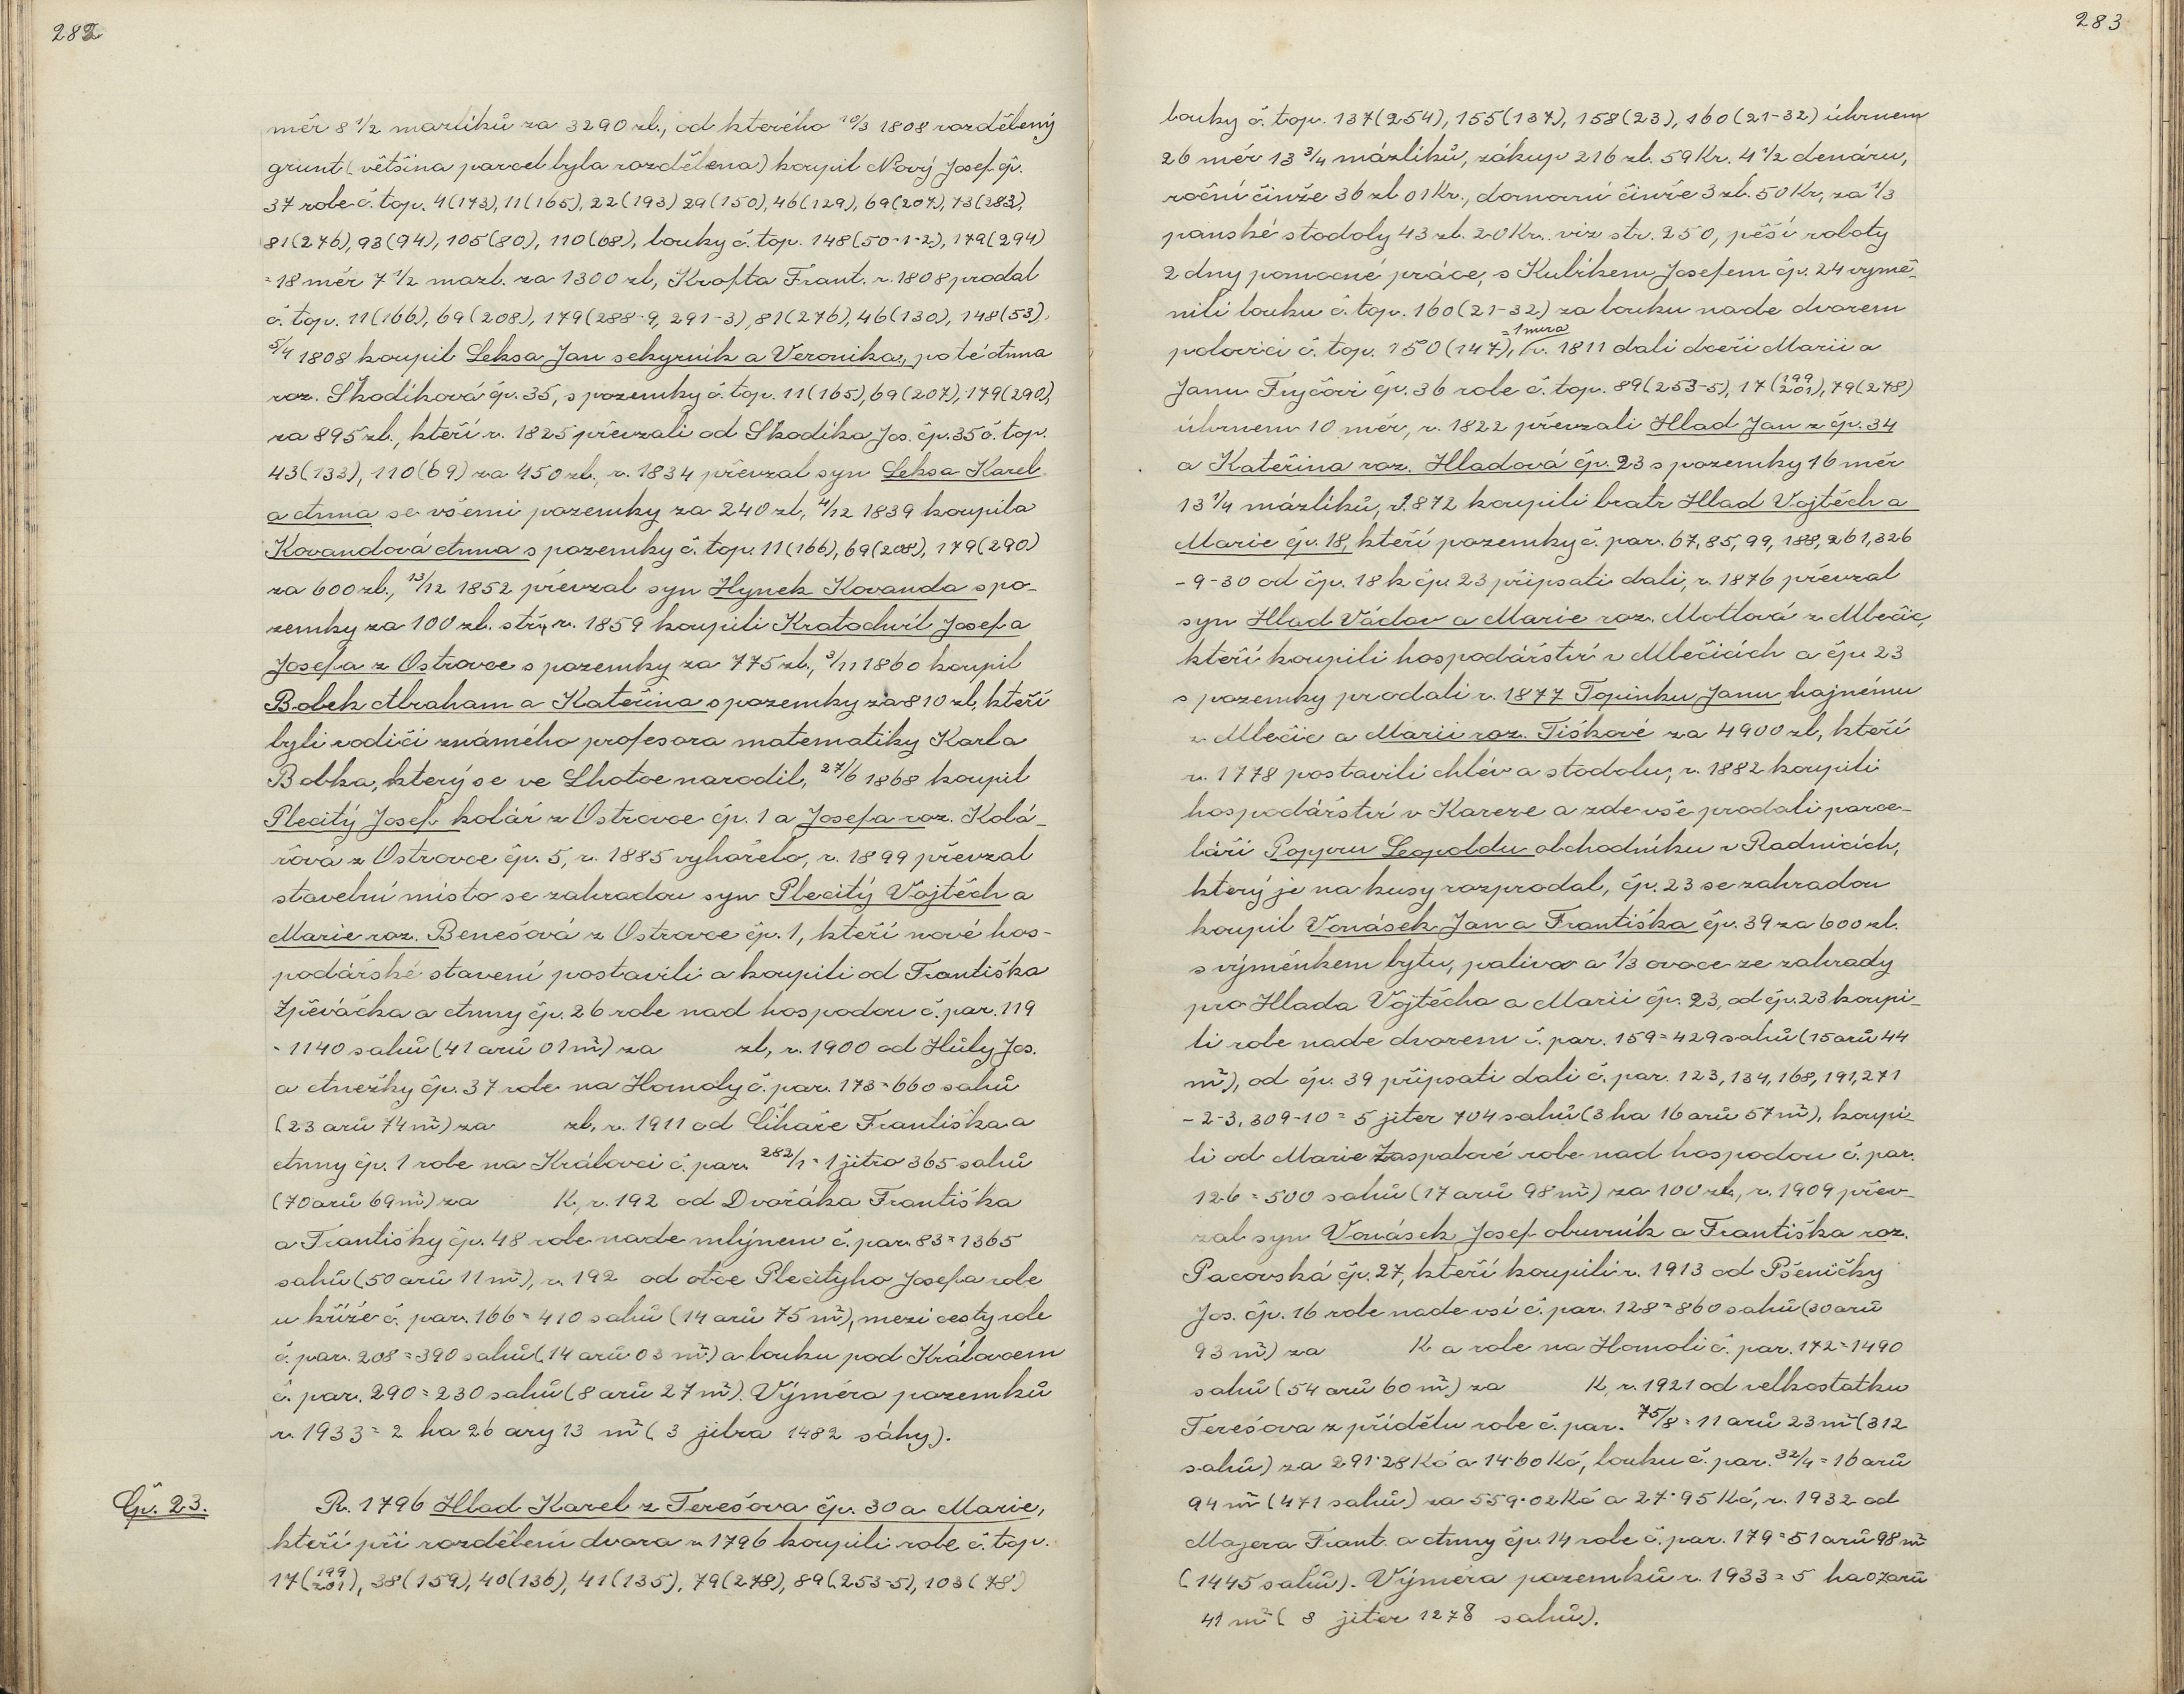 282
měr 8 1/2 mazlíků za 3290 zl., od kterého 10/3 1808 rozdělený
grunt (většina parcel byla rozdělena) koupil Nový Josef čp.
37 role č. top. 4(173), 11(165), 22(193) 29(150), 46(129), 69(207), 73(283),
81(276), 93(94), 105(80), 110(68), louky č. top. 148(50-1-2), 179(294)
=18 měr 7 1/2 mazl. za 1300 zl, Krofta Frant. r. 1808 prodal
č. top. 11(166), 69(208), 179(288-9, 291-3), 81(276), 46(130), 148(53).
5/4 1808 koupil Leksa Jan sekyrník a Veronika, po té Anna
roz. Škodíková čp. 35, s pozemky č. top. 11(165), 69(207), 179(290),
za 895 zl., kteří r. 1825 převzali od Škodíka Jos. čp. 35 č. top.
43(133), 110(69) za 450 zl., r. 1834 převzal syn Leksa Karel
a Anna se všemi pozemky za 240 zl, 4/12 1839 koupila
Kovandová Anna s pozemky č. top. 11(166), 69(208), 179(290)
za 600 zl., 13/12 1852 převzal syn Hynek Kovanda s po-
zemky za 100 zl. stř., r. 1859 koupili Kratochvíl Josef a
Josefa z Ostrovce s pozemky za 775 zl., 3/11 1860 koupil
Bobek Abraham a Kateřina s pozemky za 810 zl, kteří
byli rodiči známého profesora matematiky Karla
Bobka, který se ve Lhotce narodil, 27/6 1868 koupil
Plecitý Josef kolář z Ostrovce čp. 1 a Josefa roz. Kolá-
řová z Ostrovce čp. 5, r. 1885 vyhořelo, r. 1899 převzal
stavební místo se zahradou syn Plecitý Vojtěch a
Marie roz. Benešová z Ostrovce čp. 1, kteří nové hos-
podářské stavení postavili a koupili od Františka
Zpěváčka a Anny čp. 26 role nad hospodou č. par. 119
= 1140 sahů (41 arů 01 m²) za zl, r. 1900 od Hůly Jos.
a Anežky čp. 37 role na Homoly č. par. 173 = 660 sahů
(23 arů 74 m²) za zl, r. 1911 od Číhaře Františka a
Anny čp. 1 role na Královci č. par. 282/1 = 1 jitro 365 sahů
(70 arů 69 m²) za K, r. 192 od Dvořáka Františka
a Františky čp. 48 role nade mlýnem č. par. 83 = 1365
sahů (50 arů 11 m²), r. 192 od otce Plecityho Josefa role
u kříže č. par. 166 = 410 sahů (14 arů 75 m²), mezi cesty role
č. par. 208 = 390 sahů (14 arů 03 m²) a louku pod Královcem
č. par. 290 = 230 sahů (8 arů 27 m²). Výměra pozemků
r. 1933 = 2 ha 26 ary 13 m² (3 jitra 1482 sáhy).
Čp. 23.
R. 1796 Hlad Karel z Terešova čp. 30 a Marie,
kteří při rozdělení dvora r. 1796 koupili role č. top.
17(199 201), 38(159), 40(136), 41(135), 79(278), 89(253-5), 103(78)
283
louky č. top. 137(254), 155(137), 158(23), 160(21-32) úhrnem
26 měr 13 3/4 mázlíků, zákup 216 zl. 59 Kr. 4 1/2 denáru,
roční činže 36 zl 01 Kr., domovní činže 3 zl. 50 Kr, za 1/3
panské stodoly 43 zl. 20 Kr. viz str. 250, pěší roboty
2 dny pomocné práce, s Kulíkem Josefem čp. 24 vymě-
nili louku č. top. 160(21-32) za louku nade dvorem
= 1 mira
polovici č. top. 150(147), r. 1811 dali dceři Marii a
Janu Fryčovi čp. 36 role č. top. 89(253-5), 17(199 201), 79(278)
úhrnem 10 měr, r. 1822 převzali Hlad Jan z čp. 34
a Kateřina roz. Hladová čp. 23 s pozemky 16 měr
13 1/4 mázlíků, r. 1872 koupili bratr Hlad Vojtěch a
Marie čp. 18, kteří pozemky č. par. 67, 85, 99, 188, 261, 326
-9-30 od čp. 18 k čp. 23 připsati dali, r. 1876 převzal
syn Hlad Václav a Marie roz. Motlová z Mlečic,
kteří koupili hospodářství v Mlečicích a čp. 23
s pozemky prodali r. 1877 Topinku Janu hajnému
z Mlečic a Marii roz. Tiškové za 4900 zl, kteří
r. 1778 postavili chlév a stodolu, r. 1882 koupili
hospodářství v Kareze a zde vše prodali parce-
láři Popperu Leopoldu obchodníku v Radnicích,
který je na kusy rozprodal, čp. 23 se zahradou
koupil Vonásek Jan a Františka čp. 39 za 600 zl.
s výměnkem bytu, paliva a 1/3 ovoce ze zahrady
pro Hlada Vojtěcha a Marii čp. 23, od čp. 23 koupi-
li role nade dvorem č. par. 159 = 429 sahů (15 arů 44
m²), od čp. 39 připsati dali č. par. 123, 134, 168, 191, 271
-2-3, 309-10 = 5 jiter 704 sahů (3 ha 16 arů 57 m²), koupi-
li od Marie Zaspalové role nad hospodou č. par.
126 = 500 sahů (17 arů 98 m²) za 100 zl., r. 1909 přev-
zal syn Vonásek Josef obuvník a Františka roz.
Pacovská čp. 27, kteří koupili r. 1913 od Pšeničky
Jos. čp. 16 role nade vsí č. par. 128 = 860 sahů (30 arů
93 m²) za K a role na Homoli č. par. 172 = 1490
sahů (54 arů 60 m²) za K, r. 1921 od velkostatku
Terešova z přídělu role č. par. 75/8 = 11 arů 23 m² (312
sahů) za 291·28 Kč a 14·60 Kč, louku č. par. 32/4 = 16 arů
94 m² (471 sahů) za 559·02 Kč a 27·95 Kč, r. 1932 od
Majera Frant. a Anny čp. 14 role č. par. 179 = 51 arů 98 m²
(1445 sahů). Výměra pozemků r. 1933 = 5 ha 07 arů
41 m² (8 jiter 1278 sahů).